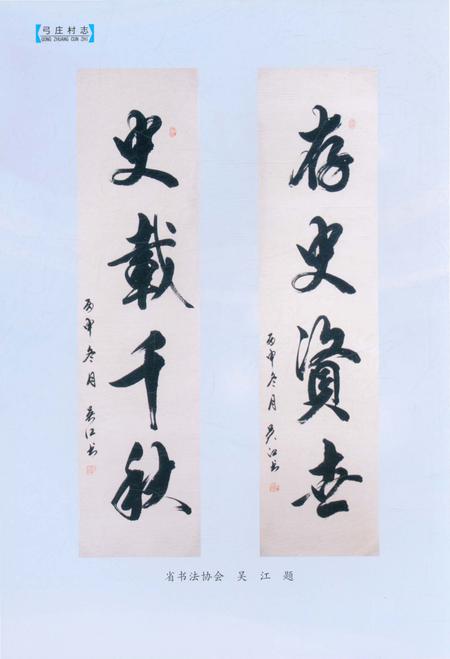 弓庄村志
GONG ZHUANG CUN ZHI
存史資世
丙申冬月 吴江书
史載千秋
丙申冬月 吴江书
省书法协会 吴 江 题